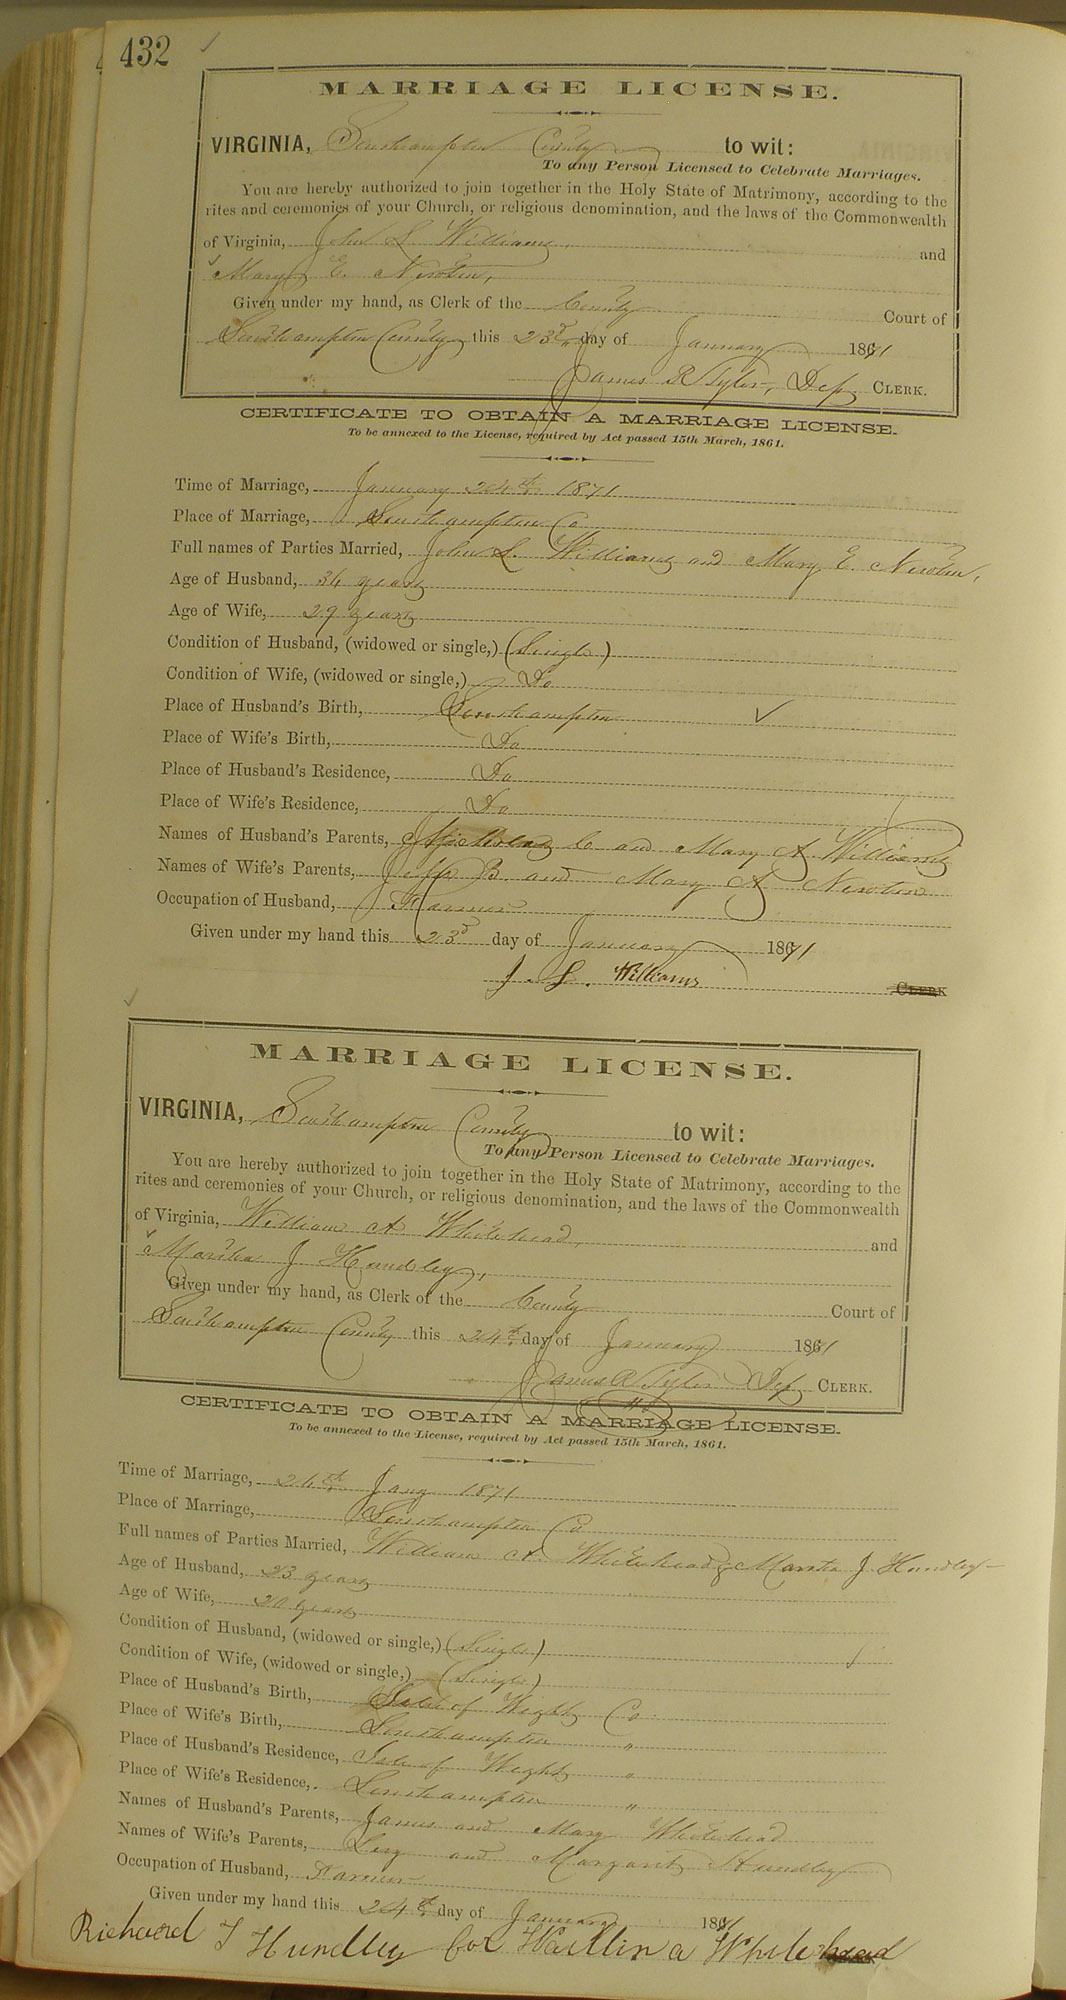 432
MARRIAGE LICENSE.
VIRGINIA, Southampton County to wit:
To any Person Licensed to Celebrate Marriages.
You are hereby authorized to join together in the Holy State of Matrimony, according to the
rites and ceremonies of your Church, or religious denomination, and the laws of the Commonwealth
of Virginia, John L. Williams, and
Mary E. Newton,
Given under my hand, as Clerk of the County Court of
Southampton County this 23d day of January 1871
James R Tyler, Dep CLERK.
CERTIFICATE TO OBTAIN A MARRIAGE LICENSE.
To be annexed to the License, required by Act passed 15th March, 1861.
Time of Marriage, January 24th 1871
Place of Marriage, Southampton Co
Full names of Parties Married, John L. Williams and Mary E. Newton,
Age of Husband, 36 years
Age of Wife, 29 years
Condition of Husband, (widowed or single,) (Single)
Condition of Wife, (widowed or single,) Do
Place of Husband's Birth, Southampton
Place of Wife's Birth, Do
Place of Husband's Residence, Do
Place of Wife's Residence, Do
Names of Husband's Parents, C and Mary A. Williams
Names of Wife's Parents, B. and Mary A Newton
Occupation of Husband, Farmer
Given under my hand this 23d day of January 1871
J. L. Williams CLERK
MARRIAGE LICENSE.
VIRGINIA, Southampton County to wit:
To any Person Licensed to Celebrate Marriages.
You are hereby authorized to join together in the Holy State of Matrimony, according to the
rites and ceremonies of your Church, or religious denomination, and the laws of the Commonwealth
of Virginia, William A Whitehead, and
Martha J Hundley,
Given under my hand, as Clerk of the County Court of
Southampton County this 24th day of January 1871
James R Tyler Dep CLERK.
CERTIFICATE TO OBTAIN A MARRIAGE LICENSE.
To be annexed to the License, required by Act passed 15th March, 1861.
Time of Marriage, 26th Jany 1871
Place of Marriage, Southampton Co
Full names of Parties Married, William A. Whitehead & Martha J. Hundley
Age of Husband, 23 years
Age of Wife, 20 years
Condition of Husband, (widowed or single,) (Single)
Condition of Wife, (widowed or single,) (Single)
Place of Husband's Birth, Isle of Wight Co
Place of Wife's Birth, Southampton "
Place of Husband's Residence, Isle of Wight "
Place of Wife's Residence, Southampton "
Names of Husband's Parents, James and Mary Whitehead
Names of Wife's Parents, and Margaret Hundley
Occupation of Husband, Farmer
Given under my hand this 24th day of January 1871
Richard T Hundley for a Whitehead